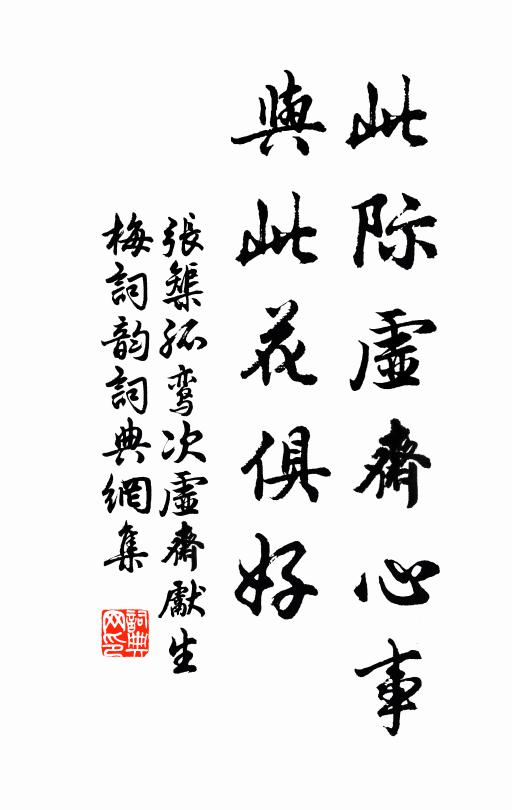 此际虛齋心事
與此花俱好
張榘孤鸾次虛齋獻生
梅詞韵詞典網集
詞典网印